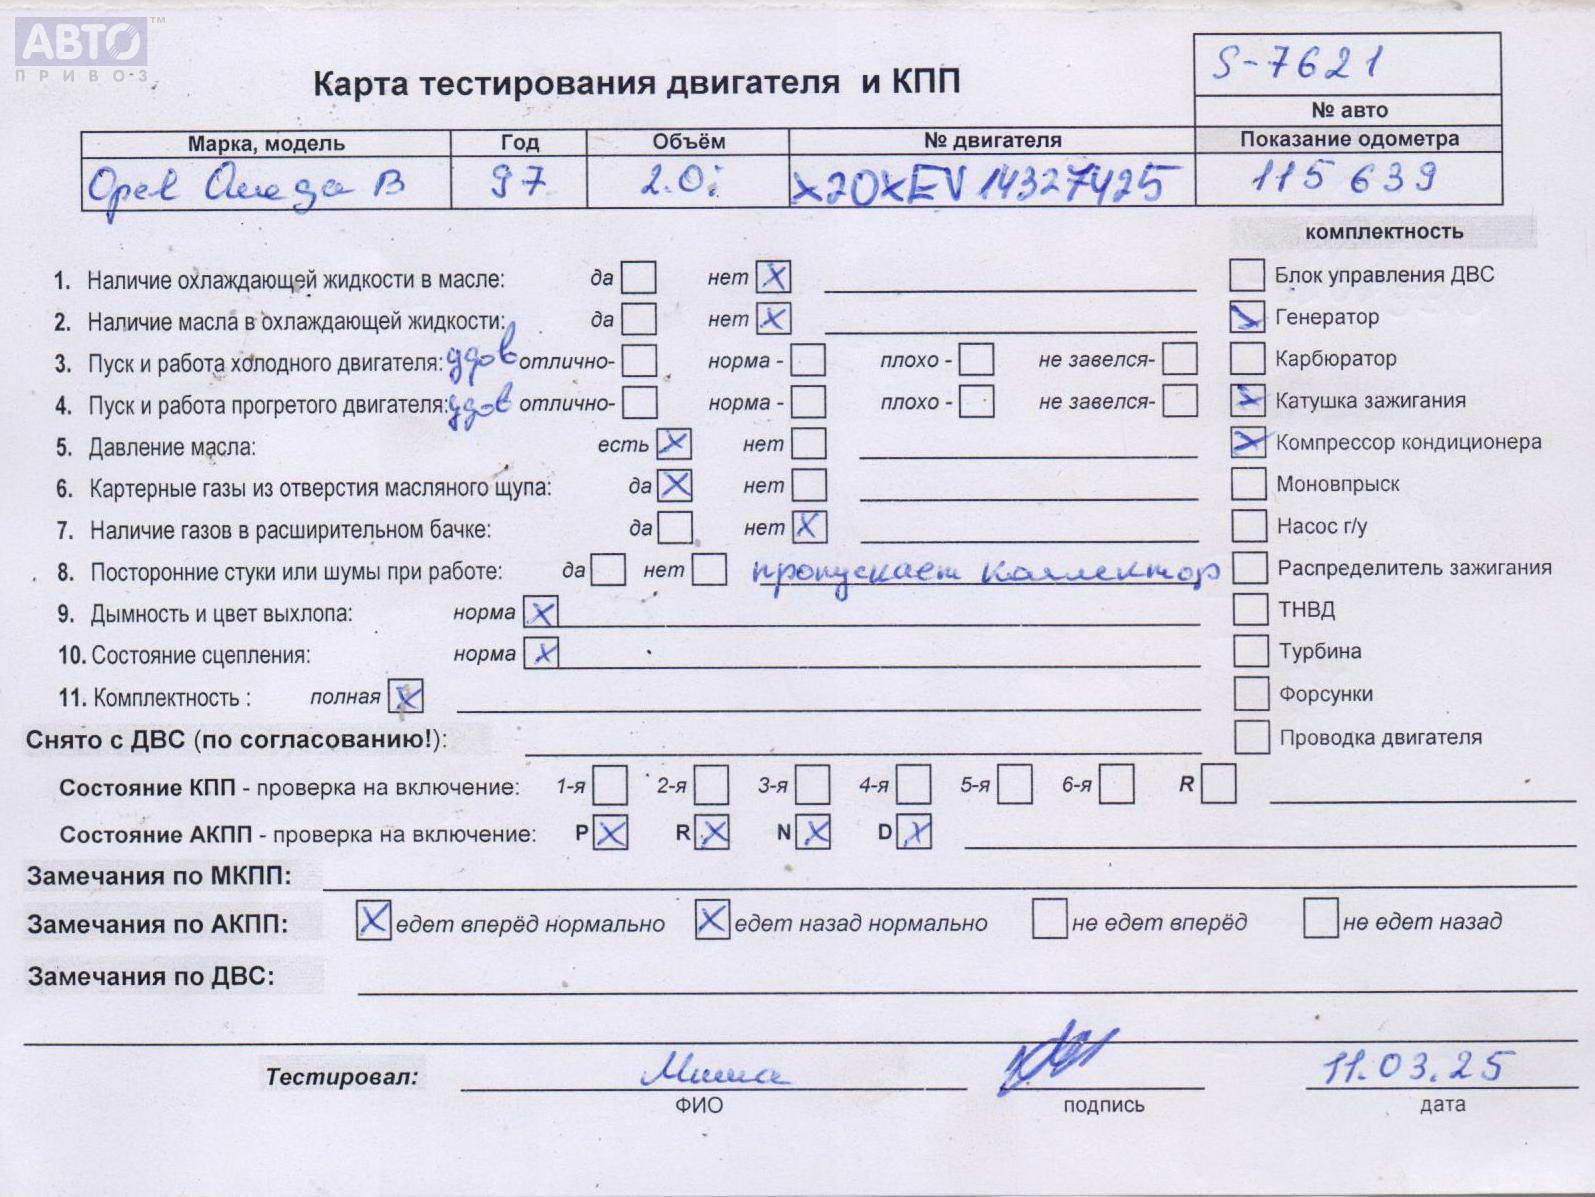 АВТО™
ПРИВОЗ
S-7621
Карта тестирования двигателя и КПП
№ авто
Марка, модель Год Объём № двигателя Показание одометра
Opel Омega B 97 2.0i X20XEV 14327425 115 639
комплектность
1. Наличие охлаждающей жидкости в масле: да нет X
Блок управления ДВС
2. Наличие масла в охлаждающей жидкости: да нет X
Генератор
3. Пуск и работа холодного двигателя: удов отлично- норма - плохо - не завелся-
Карбюратор
4. Пуск и работа прогретого двигателя: удов отлично- норма - плохо - не завелся-
Катушка зажигания
5. Давление масла: есть X нет
Компрессор кондиционера
6. Картерные газы из отверстия масляного щупа: да X нет
Моновпрыск
7. Наличие газов в расширительном бачке: да нет X
Насос г/у
8. Посторонние стуки или шумы при работе: да нет пропускает коллектор
Распределитель зажигания
9. Дымность и цвет выхлопа: норма X
ТНВД
10. Состояние сцепления: норма X
Турбина
11. Комплектность : полная X
Форсунки
Снято с ДВС (по согласованию!):
Проводка двигателя
Состояние КПП - проверка на включение: 1-я 2-я 3-я 4-я 5-я 6-я R
Состояние АКПП - проверка на включение: P X R X N X D X
Замечания по МКПП:
Замечания по АКПП: X едет вперёд нормально X едет назад нормально не едет вперёд не едет назад
Замечания по ДВС:
Тестировал: Миша 11.03.25
ФИО подпись дата